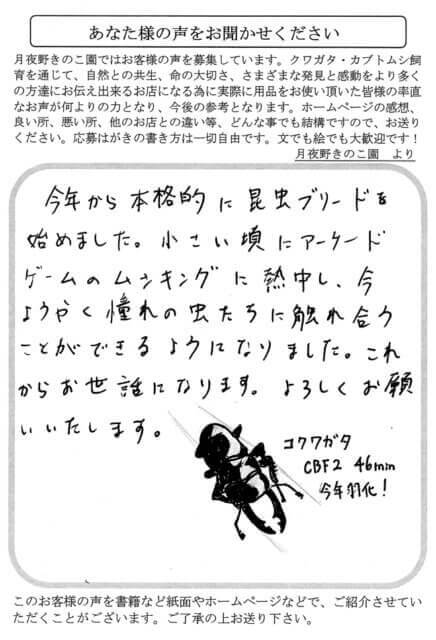 あなた様の声をお聞かせください
月夜野きのこ園ではお客様の声を募集しています。クワガタ・カブトムシ飼
育を通じて、自然との共生、命の大切さ、さまざまな発見と感動をより多く
の方達にお伝え出来るお店になる為に実際に用品をお使い頂いた皆様の率直
なお声が何よりの力となり、今後の参考となります。ホームページの感想、
良い所、悪い所、他のお店との違い等、どんな事でも結構ですので、お送り
ください。応募はがきの書き方は一切自由です。文でも絵でも大歓迎です！
月夜野きのこ園　より
今年から本格的に昆虫ブリードを
始めました。小さい頃にアーケード
ゲームのムシキングに熱中し、今
ようやく憧れの虫たちに触れ合う
ことができるようになりました。これ
からお世話になります。よろしくお願
いいたします。
コクワガタ
CBF2 46mm
今年羽化！
このお客様の声を書籍など紙面やホームページなどで、ご紹介させてい
ただくことがございます。ご了承の上お送り下さい。